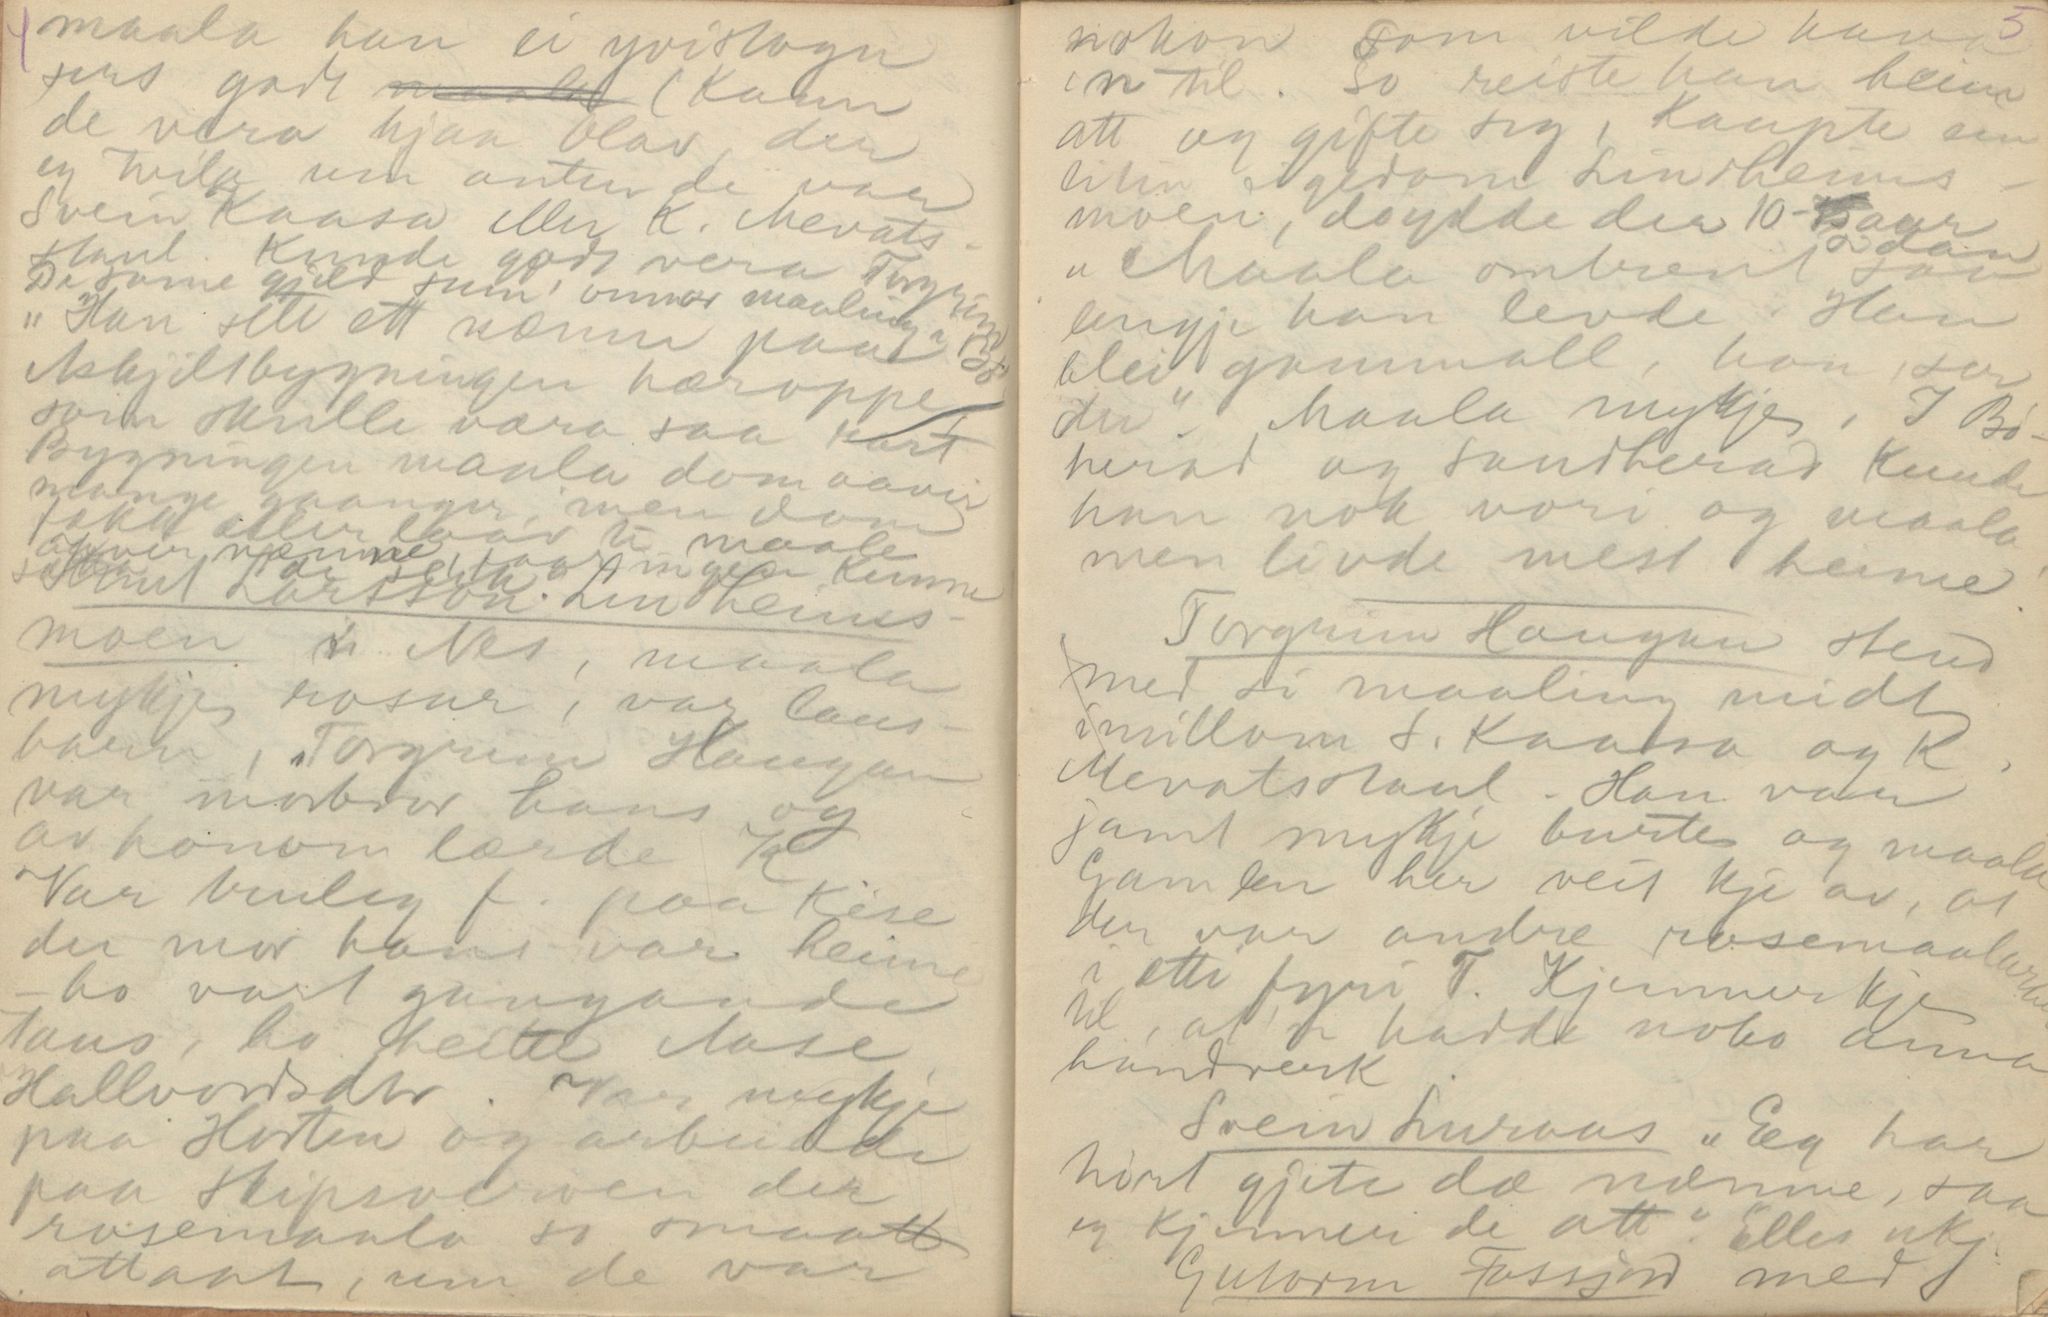 4
maala han ei yvistogu
sers godt maala (Kann
de vera hjaa Olav, der
eg tvila um anten de var
Svein Kaasa eller K. Mevats-
staul. Kunde godt vera Torgrim
De same gjeld sum' annor maaling i Bø
"Han sette ett næmne paa
Askjilsbygningen hæroppe
som skulle være saa svart
Bygningen maala dom aaver
mange gaanger, men dom
fekk aller laav te maale
aaver næmne, for ingen kunne
Knut Larsson Lindheims-
moen i Nes, maala
mykje rosur, var laus-
barn, "Torgrim Haugan
var morbror hans og
av honom lærde K
Var truleg f. paa Kise
der mor hans var heime
- ho vart gangande
taus, ho heitte Aase
Hallvordsdtr. Var mykje
paa Horten og arbeidde
paa skipsverven der
rosemaala so smaatt
attaat, um de var
5
nokon som vilde hava
'n til. So reiste han heim
att og gifte seg, kaupte ein
liten eigedom Lindheims-
moen, døydde der 10- aar
sidan
"Maala ombrent saa
lengje han levde. Han
blei gammall, han, ser
du". Maala mykje, I Bø-
herad og Sandherad kunde
han nok vori og maala
men livde mest heime.
Torgrim Haugan stend
med si maaling midt
imillom S. Kaasa og K.
Mevatsstaul. Han var
jamt mykje burte og maala
Gamlen her veit kje av, at
der var andre rosemaalarar
i ætti fyri T. Kjenner kje
til, at 'n hadde noko anna
handverk.
Svein Luraas "Eg har
hørt gjete dæ næmne, saa
eg kjenner de att". Elles ukj.
Gutorm Fossjord med